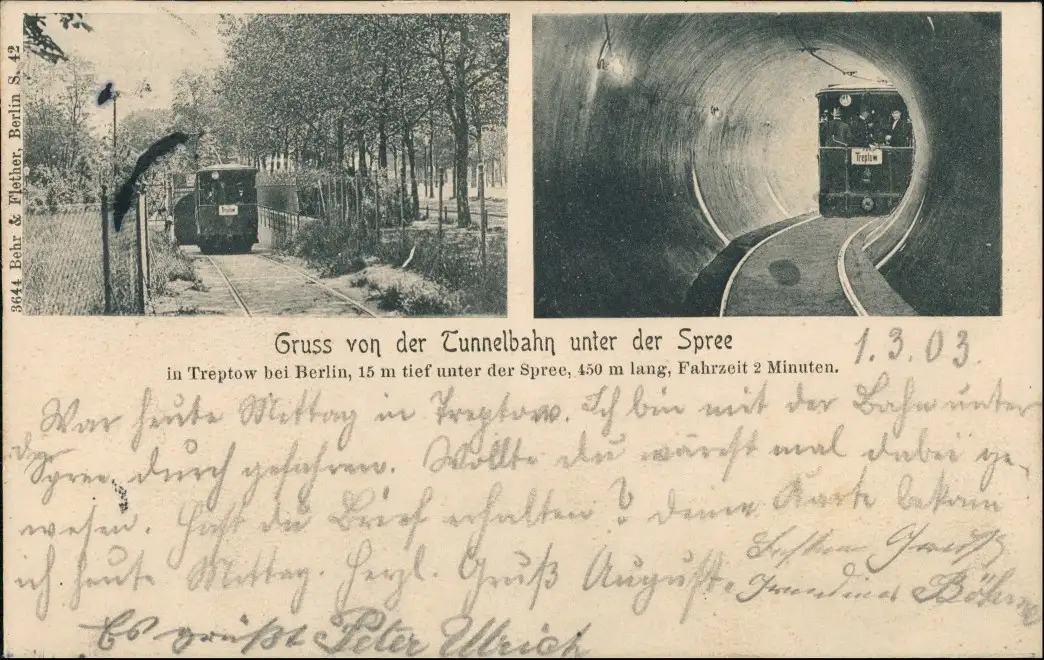 3644 Behr & Flether, Berlin S. 42
Treptow
Treptow
Gruss von der Tunnelbahn unter der Spree
in Treptow bei Berlin, 15 m tief unter der Spree, 450 m lang, Fahrzeit 2 Minuten.
1.3.03.
War heute Mittag in Treptow. Ich bin mit der Bahn unter
der
Spree durch gefahren. Wollte du wärest mal dabei ge-
wesen. Hast du Brief erhalten? deine Karte bekam
ich heute Mittag. Herzl. Gruß August.
Gruß
Böhme
Es grüßt Peter Ulrich